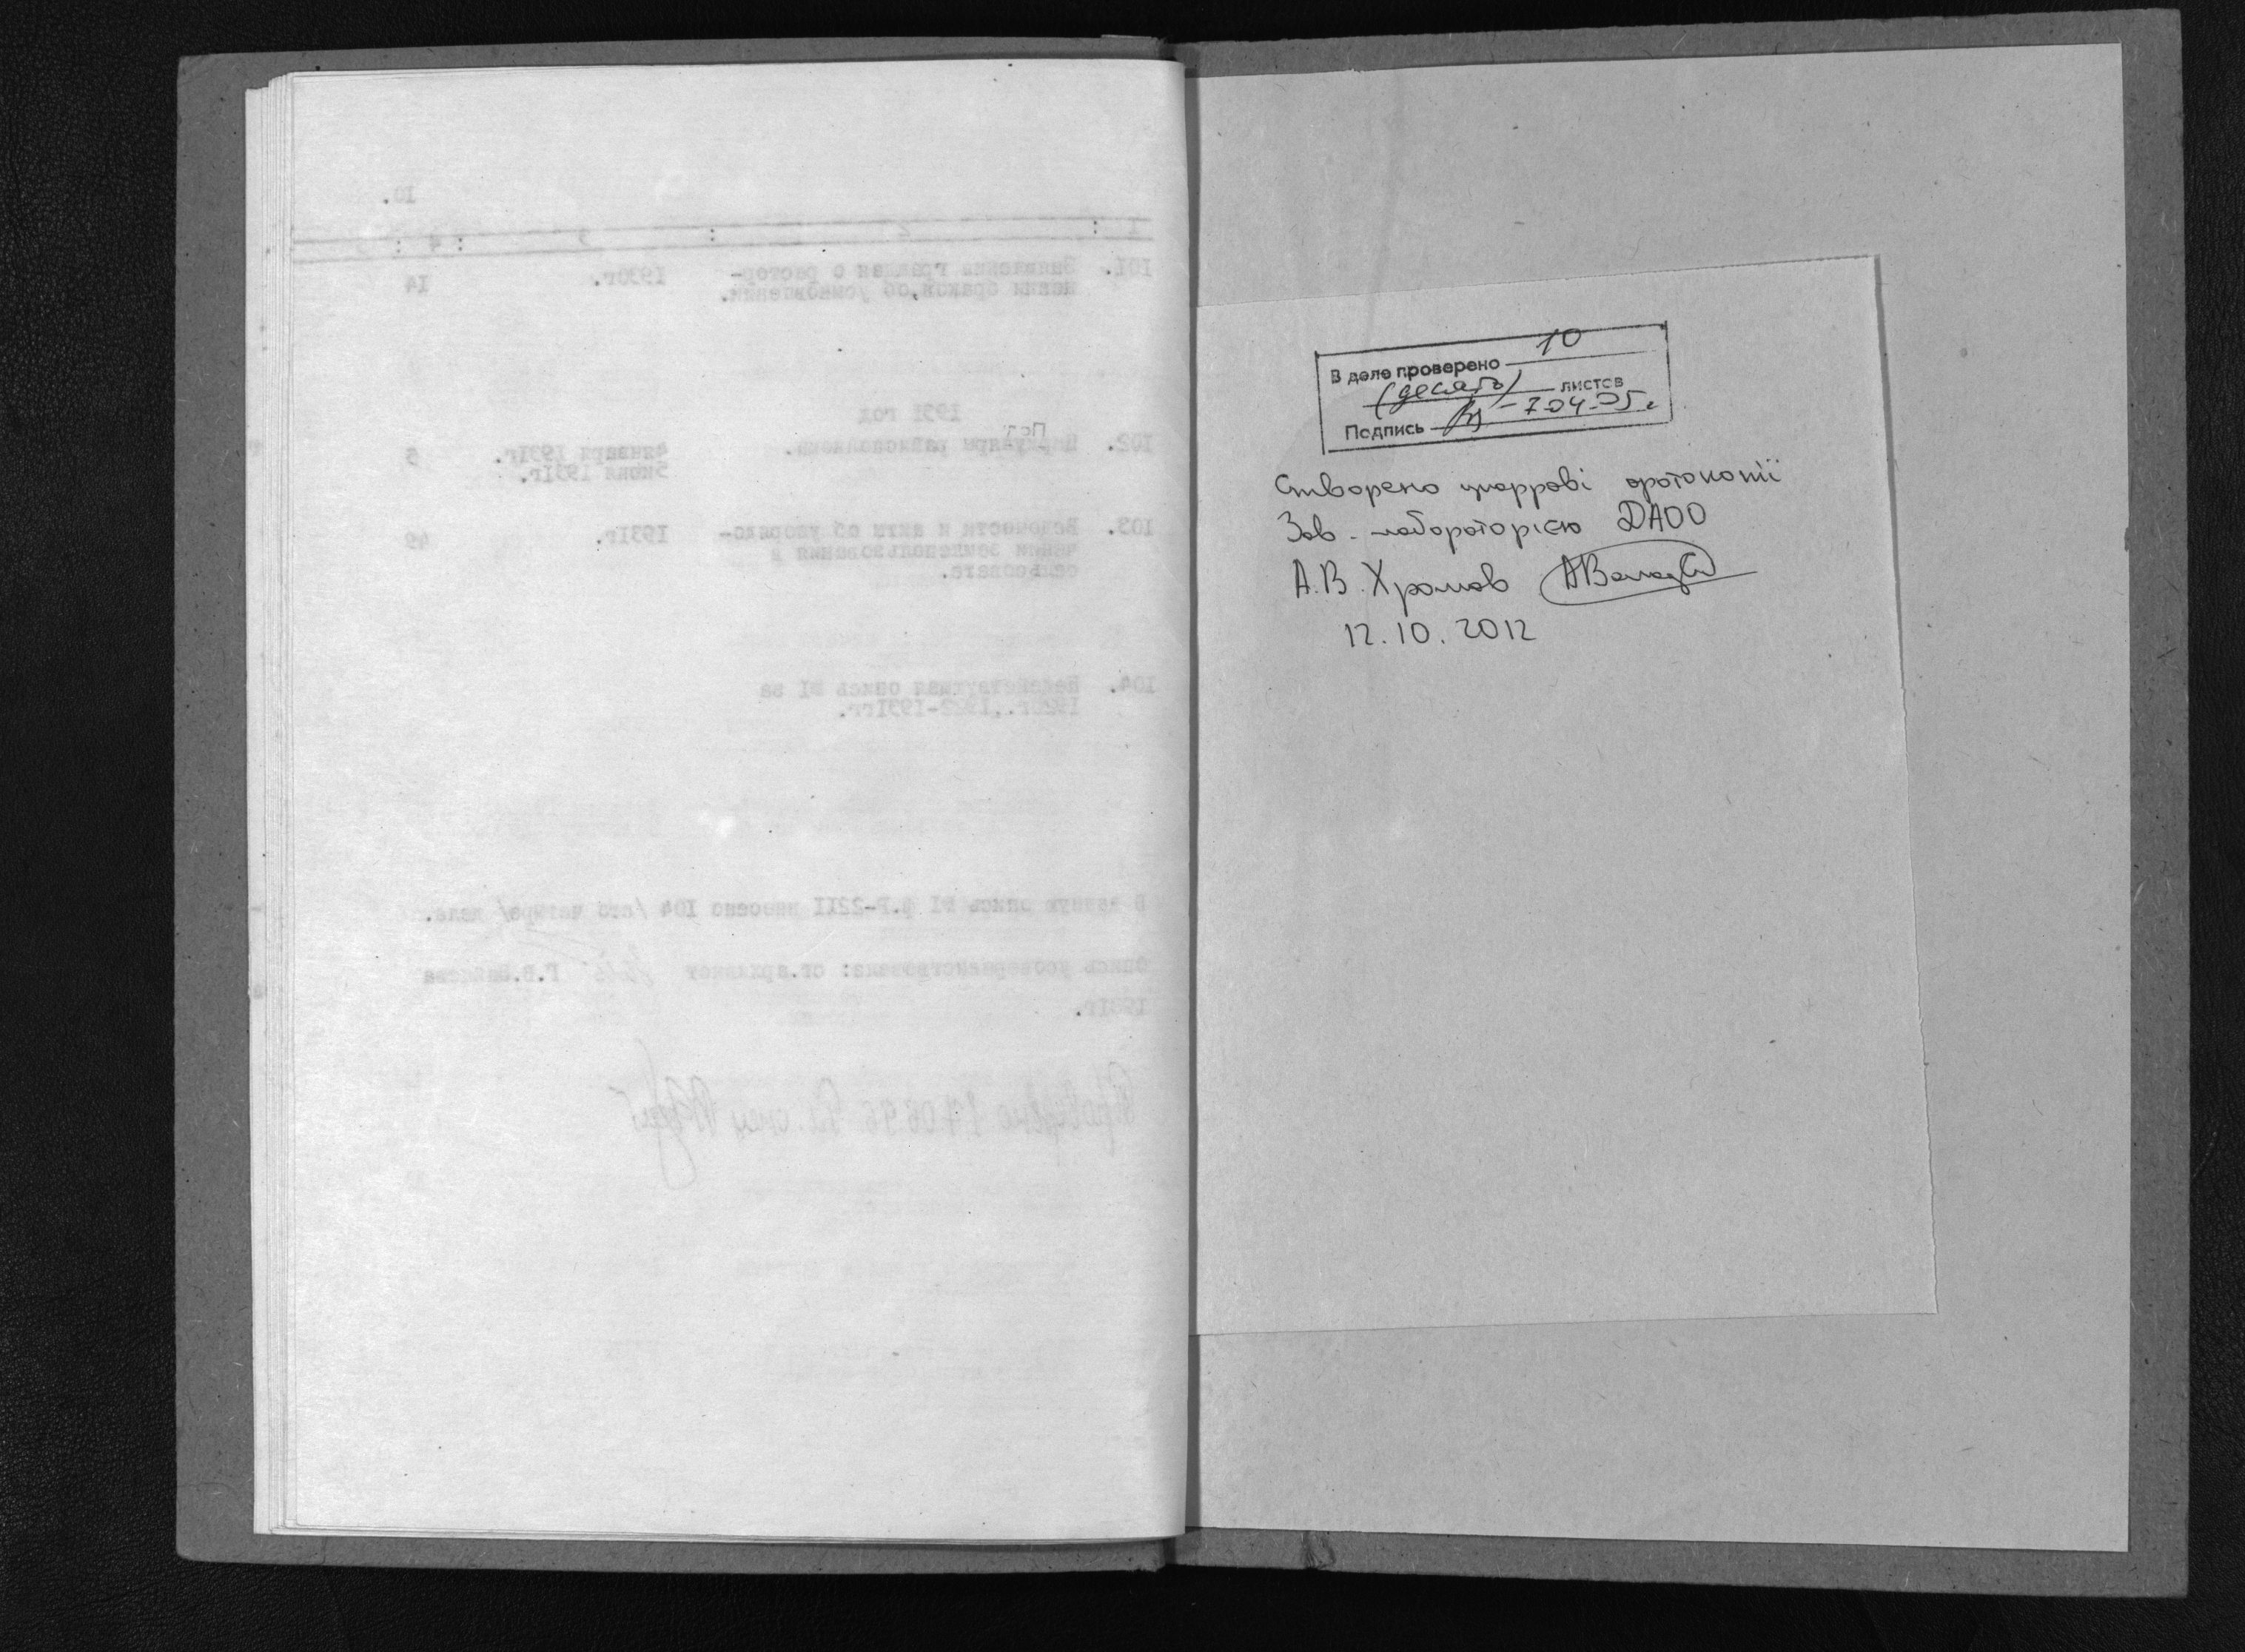 10.
1 : 2 : 3 : 4 :
101. Заявления граждан о растор- 1930г. 14
жении браков, об усыновлении.
1931 год
102. Циркуляры райисполкома. 4января 1931г. 5
5июня 1931г.
103. Ведомости и акты об упорядо- 1931г. 49
чении землепользования в
сельсовете.
104. Недействующая опись №1 за
1920г.,1922-1931гг.
В данную опись №1 ф.Р-2211 внесено 104 /сто четыре/ дела.
Опись усовершенствована: ст.архивист Г.В.
1991г.
Проверено 17.06.96
В деле проверено 10
(десять) листов
Подпись 7-04-05г
Створено цифрові фотокопії
Зав. лабораторією ДАОО
А.В. Хромов
12.10.2012